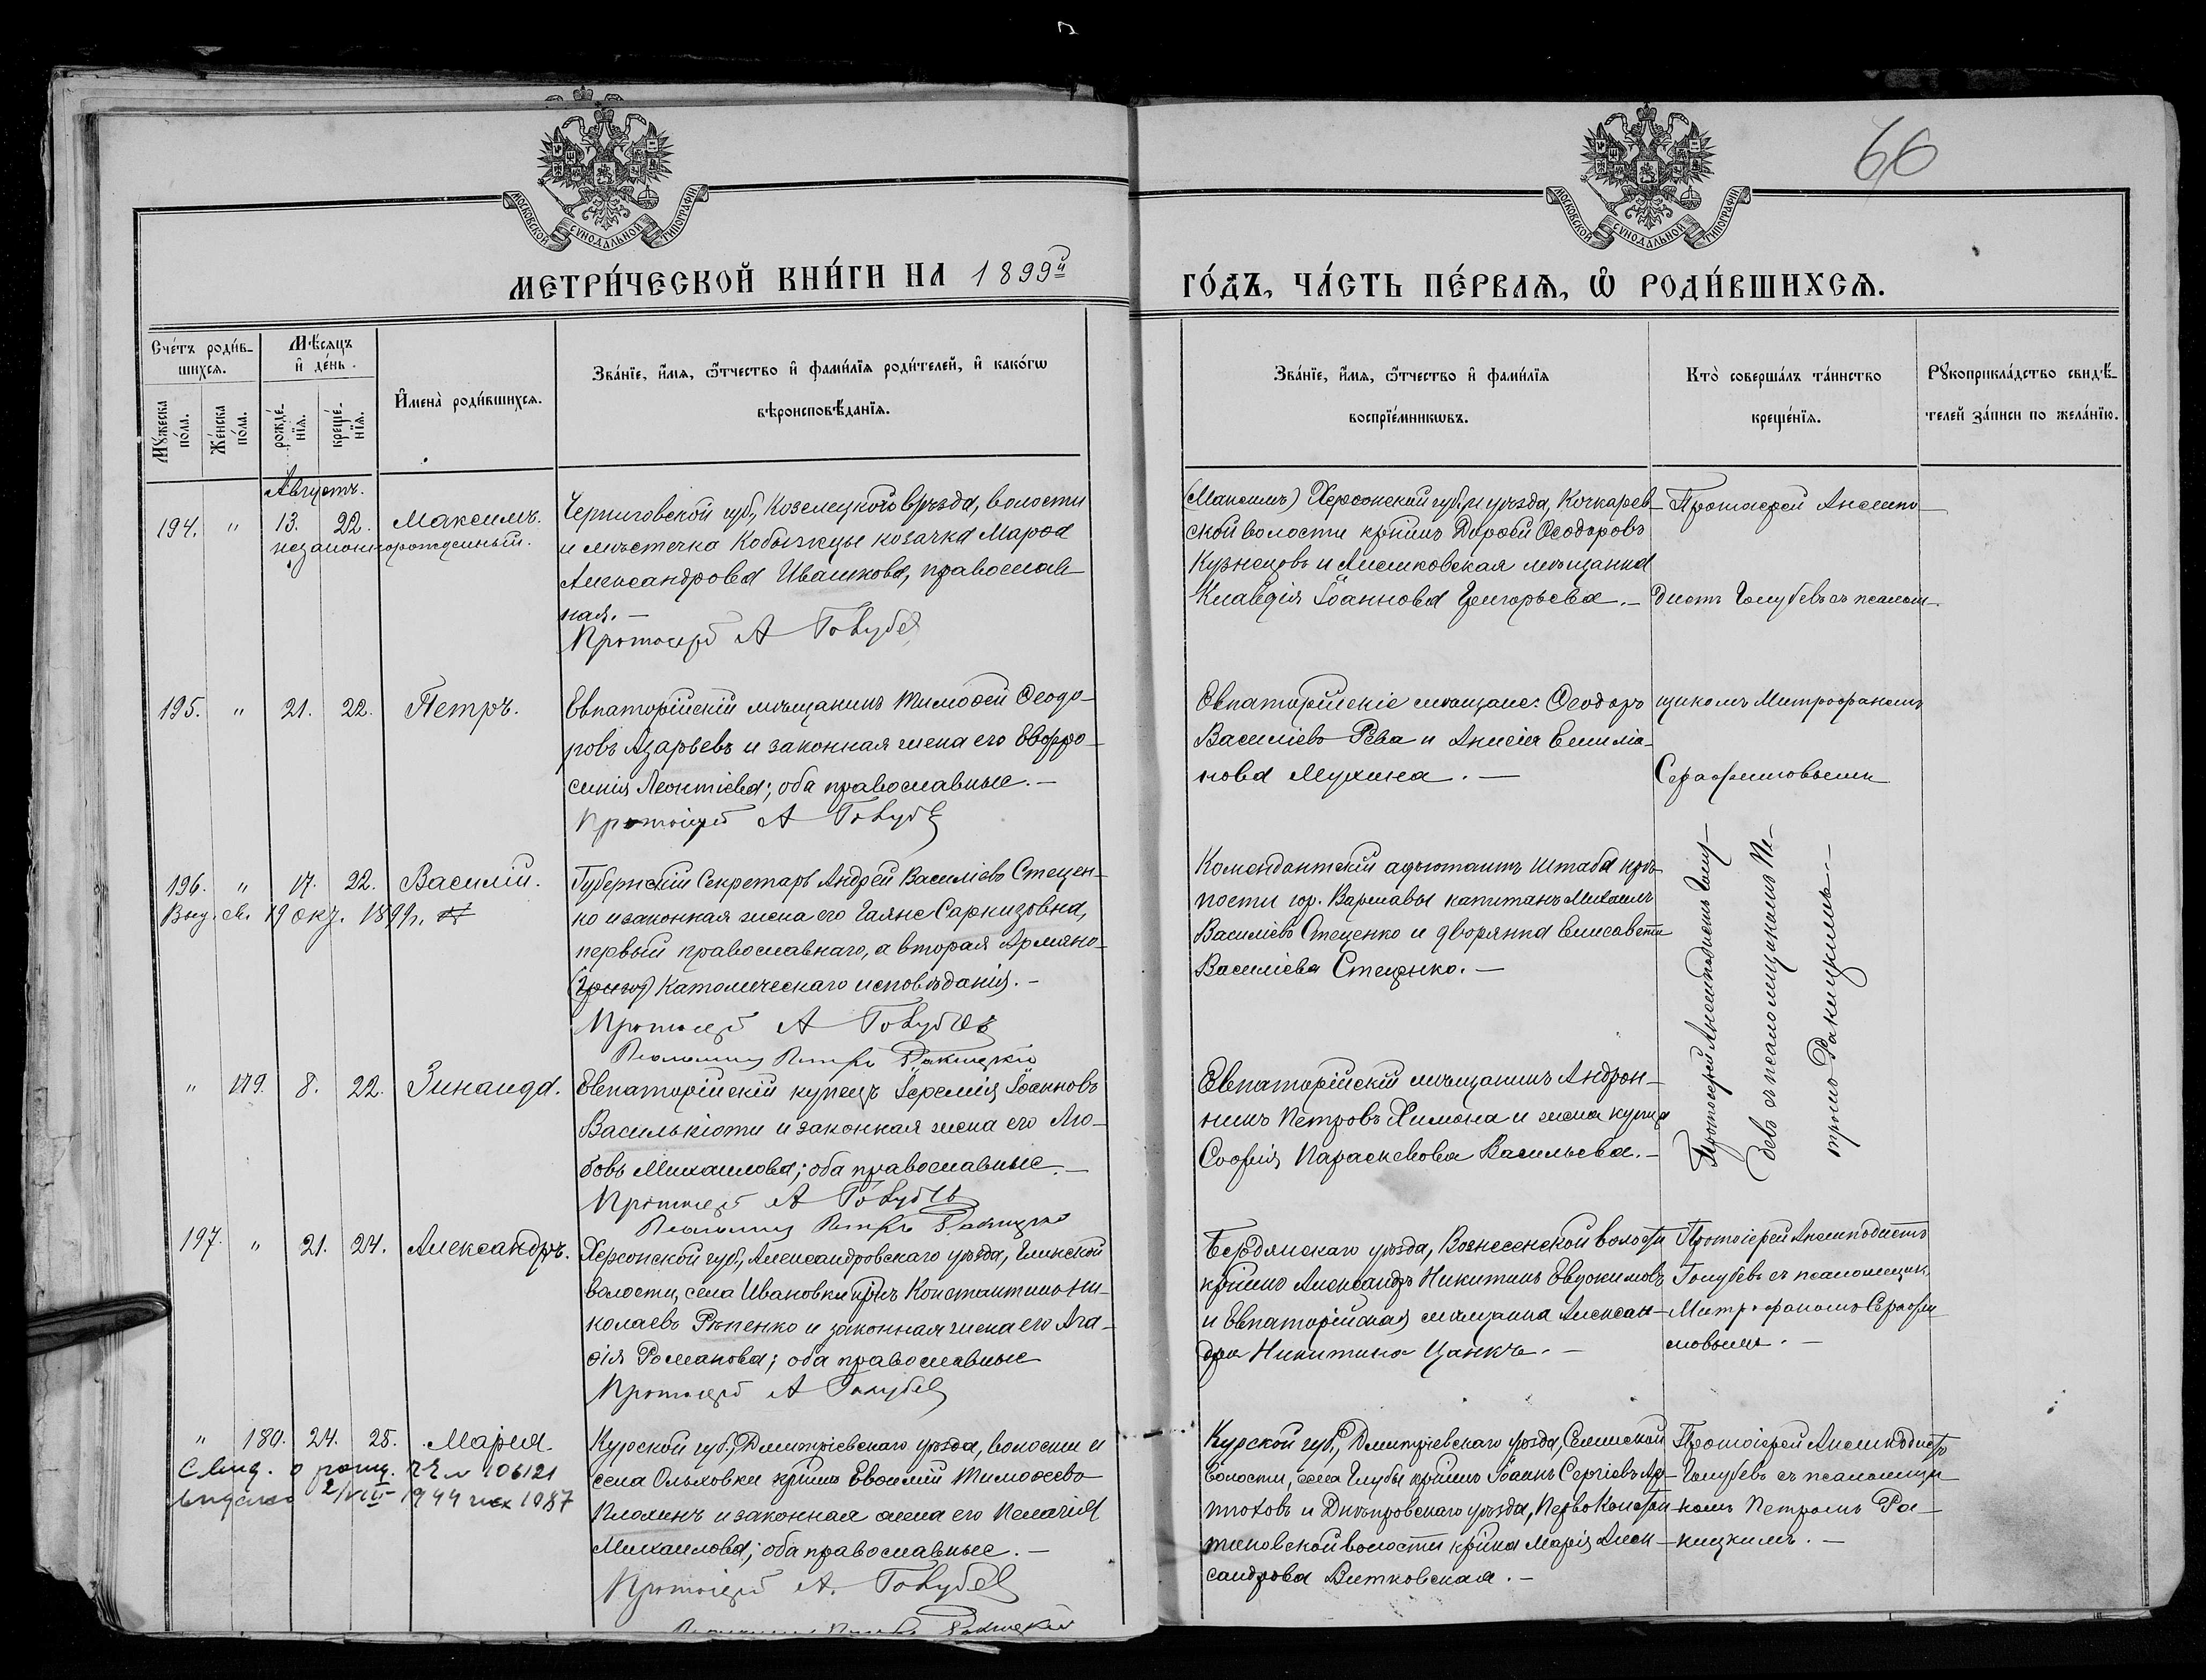 66
МОСКОВСКОЙ СУНОДАЛЬНОЙ ТИПОГРАФІИ
МОСКОВСКОЙ СУНОДАЛЬНОЙ ТИПОГРАФІИ
МЕТРИ́ЧЕСКОЙ КНИ́ГИ НА 1899й
ГО́ДЪ, ЧА́СТЬ ПЕ́РВАѦ, Ѡ҆ РОДИ́ВШИХСѦ.
Сче́тъ роди́в-
шихсѧ.
Мѣ́сѧцъ
и҆ де́нь.
Мꙋ́жеска
по́ла.
Же́нска
по́ла.
рожде́-
нїѧ.
креще́-
нїѧ.
И҆мена̀ роди́вшихсѧ.
Зва́нїе, и҆́мѧ, ѻ҆́тчество и҆ фами́лїѧ роди́телей, и҆ како́гѡ
вѣроисповѣ́данїѧ.
Зва́нїе, и҆́мѧ, ѻ҆́тчество и҆ фами́лїѧ
воспрїе́мникѡвъ.
Кто̀ соверша́лъ та́инство
креще́нїѧ.
Рꙋкоприкла́дство свидѣ́-
телей за́писи по жела́нїю.
Августъ.
194. " 13. 22. Максимъ.
незаконнорожденный.
Черниговской губ., Козелецкого уѣзда, волости
и мѣстечка Кобыжцы козачка Марѳа
Александрова Ивашкова, православ-
ная. —
Протоіерей А Голубев
(Максимъ) Херсонской губ. и уѣзда, Кочкарев-
ской волости кр҃нинъ Дороѳей Ѳеодоровъ
Кузнецовъ и Алешковская мѣщанка
Клавдія Іоаннова Григорьева. —
Протоіерей Анемпо-
дистъ Голубевъ съ псалом-
195. " 21. 22. Петръ.
Евпаторійскій мѣщанинъ Тимоѳей Ѳеодо-
ровъ Азарьевъ и законная жена его Евфро-
синія Леонтіева; оба православные. —
Протоіерей А Голубев
Евпаторійскіе мѣщане: Ѳеодоръ
Василіевъ Рева и Анисія Емиліа-
нова Мухина. —
щикомъ Митрофаномъ
Серафимовымъ
196. " 17. 22. Василій.
Выд. св. 19 окт. 1899г.
Губернскій Секретарь Андрей Василіевъ Стецен-
ко и законная жена его Гаяне Саркизовна,
первый православнаго, а вторая Армяно-
(Григор) Католическаго исповѣданія. —
Протоіерей А Голубевъ
Псаломщ Петръ Ракицкій
Комендантскій адъютантъ Штаба крѣ-
пости гор. Варшавы капитанъ Михаилъ
Василіевъ Стеценко и дворянка Елисавета
Василіева Стеценко. —
Протоіерей Анемподистъ Голу-
бевъ съ псаломщикомъ Пе-
тромъ Ракицкимъ. —
" 179. 8. 22. Зинаида.
Евпаторійскій купецъ Іеремія Іоанновъ
Василькіоти и законная жена его Лю-
бовь Михаилова; оба православные. —
Протоіерей А Голубевъ
Псаломщ Петръ Ракицкій
Евпаторійскій мѣщанинъ Андрон-
никъ Петровъ Химона и жена купца
Софія Параскевова Васильева. —
197. " 21. 24. Александръ.
Херсонской губ., Александровскаго уѣзда, Глинской
волости, села Ивановки кр҃нъ Константинъ Ни-
колаевъ Рѣпенко и законная жена его Ага-
ѳія Романова; оба православные
Протоіерей А Голубев
Бердянскаго уѣзда, Вознесенской волости
кр҃нинъ Александръ Никитинъ Евдокимовъ
и Евпаторійская мѣщанка Алексан-
дра Никитина Цанкъ. —
Протоіерей Анемподистъ
Голубевъ съ псаломщик.
Митрофаномъ Серафи-
мовымъ. —
" 180. 24. 25. Марія.
Свид. о рожд. № 106121
выдано 2/VIII- 1944 1087
Курской губ., Дмитріевскаго уѣзда, волости и
села Ольховки кр҃нинъ Евѳимій Тимоѳеевъ
Плохинъ и законная жена его Пелагія
Михаилова; оба православные. —
Протоіерей А. Голубев
Псаломщ Петръ Ракицкій
Курской губ., Дмитріевскаго уѣзда,
волости, села кр҃нинъ Іоаннъ Сергіевъ Ар-
тюховъ и Днѣпровскаго уѣзда, Перво Констан-
тиновской волости кр҃нка Марія Алек-
сандрова Витковская. —
Протоіерей Анемподистъ
Голубевъ съ псаломщи-
комъ Петромъ Ра-
кицкимъ. —